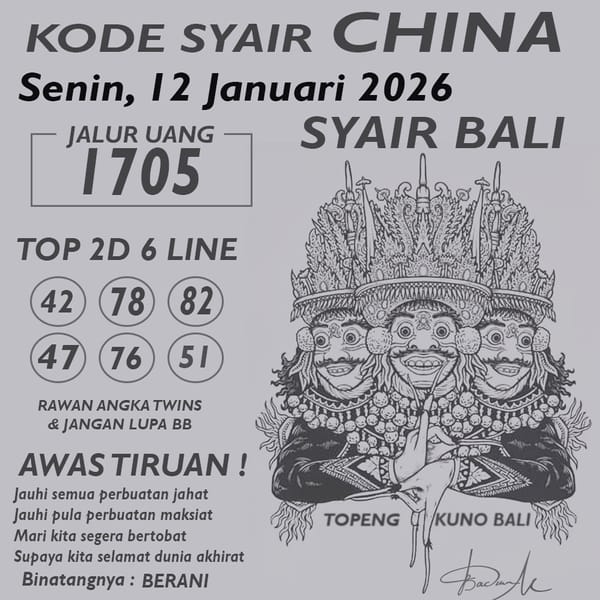 KODE SYAIR CHINA
Senin, 12 Januari 2026
JALUR UANG
1705
SYAIR BALI
TOP 2D 6 LINE
42 78 82
47 76 51
RAWAN ANGKA TWINS
& JANGAN LUPA BB
AWAS TIRUAN !
Jauhi semua perbuatan jahat
Jauhi pula perbuatan maksiat
Mari kita segera bertobat
Supaya kita selamat dunia akhirat
Binatangnya : BERANI
TOPENG KUNO BALI